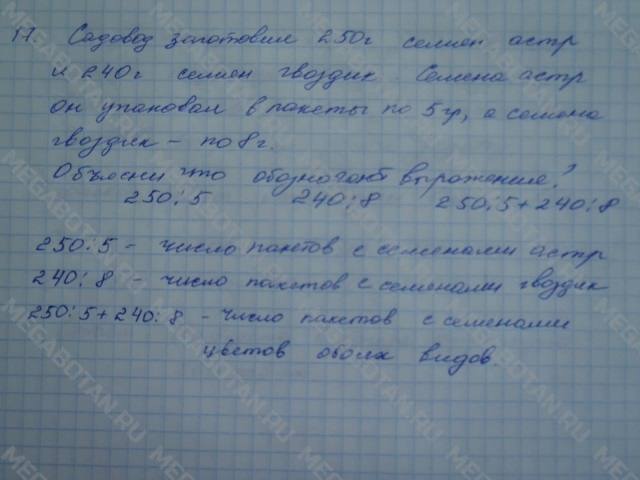 17. Садовод заготовил 250г семян астр
и 240г семян гвоздик. Семена астр
он упаковал в пакеты по 5гр, а семена
гвоздик - по 8г.
Объясни что обозначают выражения?
250:5 240:8 250:5+240:8
250:5 - число пакетов с семенами астр
240:8 - число пакетов с семенами гвоздик
250:5+240:8 - число пакетов с семенами
цветов обоих видов.
MEGABOTAN.RU